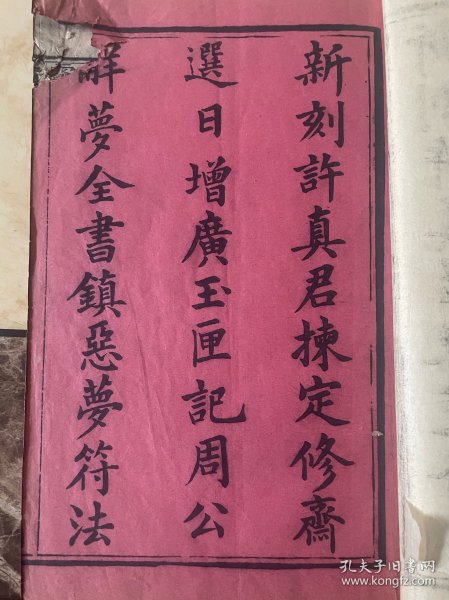 新刻許真君揀定修齋
選日增廣玉匣記周公
解夢全書鎮惡夢符法
孔夫子旧书网
www.kongfz.com